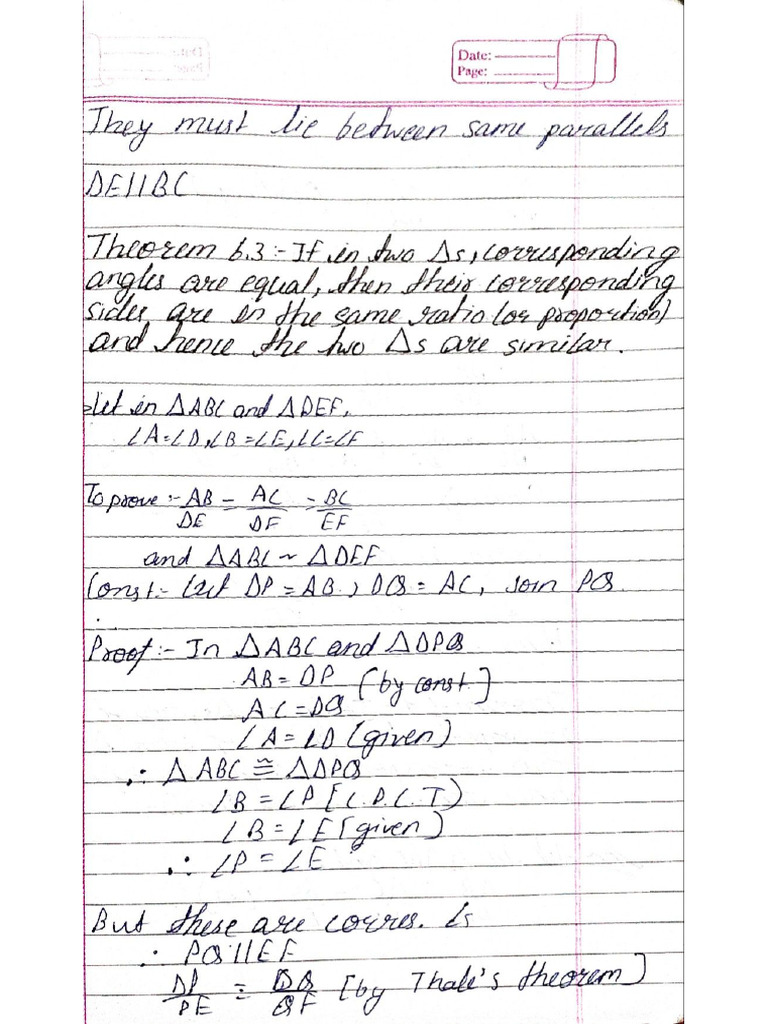 Date:
Page:
They must lie between same parallels
DE||BC
Theorem 6.3:- If in two Δs, corresponding
angles are equal, then their corresponding
sides are in the same ratio (or proportion)
and hence the two Δs are similar.
Let in ΔABC and ΔDEF,
∠A=∠D, ∠B=∠E, ∠C=∠F
To prove :- AB/DE = AC/DF = BC/EF
and ΔABC ~ ΔDEF
Const:- Let DP = AB, DQ = AC, Join PQ
Proof:- In ΔABC and ΔDPQ
AB = DP [by const.]
AC = DQ
∠A = ∠D (given)
∴ ΔABC ≅ ΔDPQ
∠B = ∠P [C.P.C.T)
∠B = ∠E [given)
∴ ∠P = ∠E
But these are corres. ∠s
∴ PQ||EF
DP/PE = DQ/QF [by Thale's theorem]